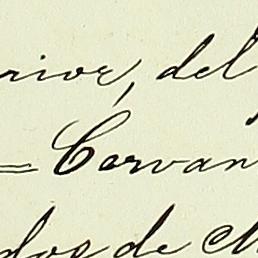 rior, del
= Cervan
dos de M